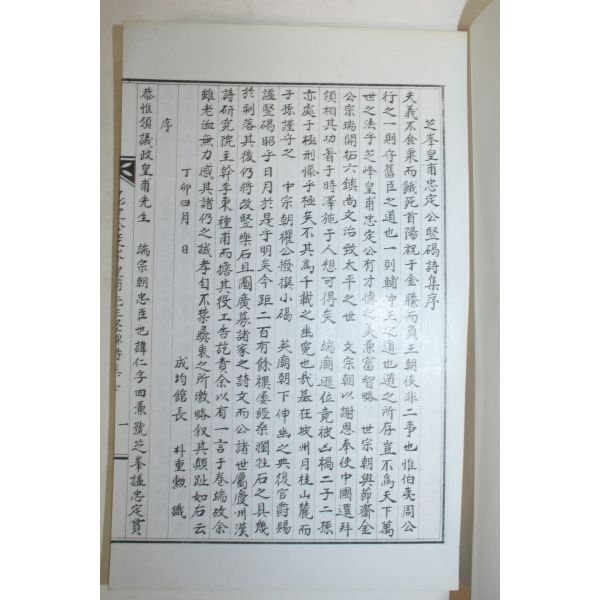 芝峯皇甫忠定公竪碣詩集序
夫義不食粟而餓死首陽祝于金縢而負王朝侯非二事也惟伯夷周公
行之一則守舊臣之道也一則輔冲王之道也道之所存豈不爲天下萬
世之法乎芝峰皇甫忠定公有才德之美兼富智略 世宗朝與節齋金
公宗瑞開拓六鎮尚文治致太平之世 文宗朝以謝恩奉使中國還拜
領相其功著于時澤施于人想可得矣 端廟遜位竟被凶禍二子二孫
亦處于極刑慘乎極矣不其爲千載之幽寃也哉墓在坡州月桂山麓而
子孫謹守之 中宗朝櫂公撥撰小碣 英廟朝下伸幽之典後官爵賜
謚竪碣昭乎日月於是乎明矣今距二百有餘禩委經桑瀾牲石之具幾
於剥落其後仍將改竪樂石且圖廣募諸家之詩文而公諸世屬慶州漢
詩研究院主幹李東種甫而擔其役工告訖責余以有一言于卷端故余
雖老洫無力感其諸仍之誠孝自不禁彝衷之所激略叙其顛趾如右云
丁卯四月 日
成均館長 朴重勳 識
序
恭惟領議政皇甫先生 端宗朝忠臣也諱仁字四兼號芝峯謚忠定貫
一